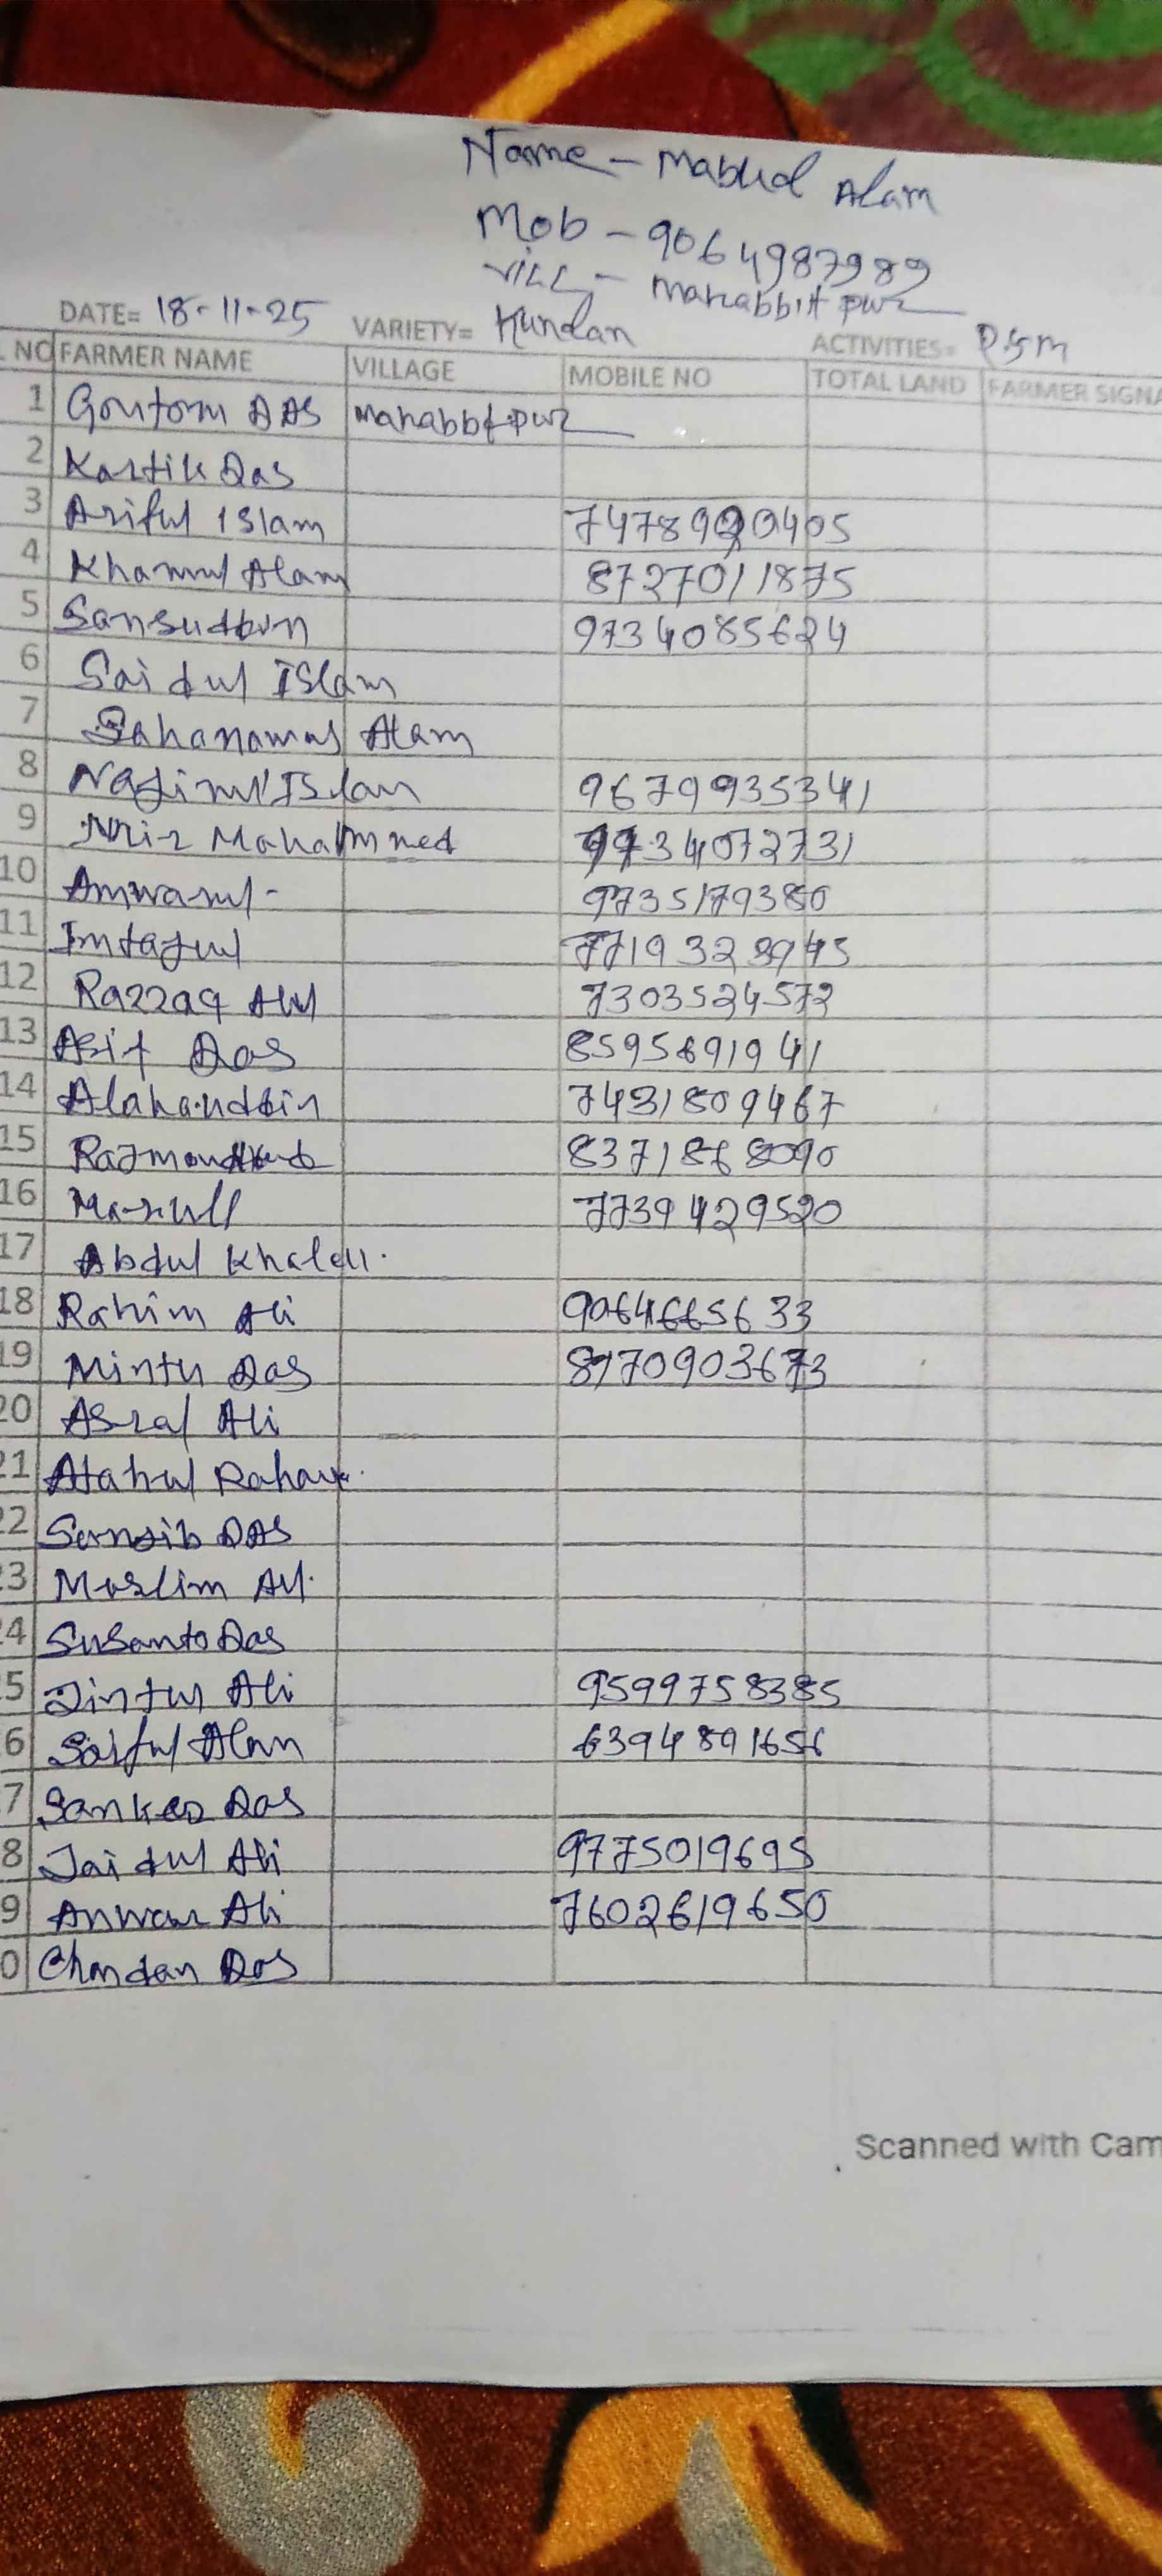 Name - Mabud Alam
Mob - 9064987989
Vill - Mahabbit pur
DATE= 18-11-25 VARIETY= Kundan ACTIVITIES=
NO FARMER NAME VILLAGE MOBILE NO TOTAL LAND FARMER SIGNA
1 Goutom DAS Mahabbt pur
2 Kartik Das
3 Ariful Islam
4 Khairul Alam 8727011875
5 9734085624
6 Saidul ISlam
7 Alam
8 Najimul ISlam 9679935341
9 Mahammed
10 Anwarul - 9735179380
11 Imtajul
12 Razzaq Ali 7303524572
13 Asit Das 8595691941
14 7431809467
15
16 7739429520
17 Abdul Khalek.
18 Rahim Ali 9064665633
19 Mintu Das
20 Asraf Ali
21 Atahul
22 DAS
23 Moslim Ali.
24 Susanto Das
5 Jintu Ali 9599758385
6 Saiful Alam 6394891656
7 Das
8 Jaidul Ali 9775019695
9 Anwar Ali 7602619650
0 Chandan Das
Scanned with Cam